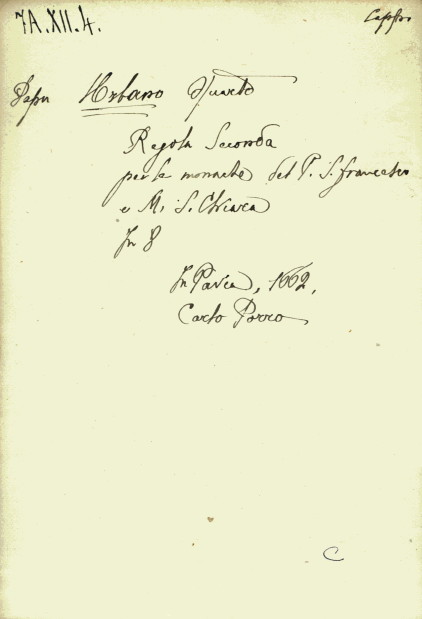 7A.XII.4.
Papa Urbano Quarto
Regola Seconda
per le monache del P. S. Francesco
e M. S. Chiara
In 8
In Pavia, 1662,
Carlo Porro
C